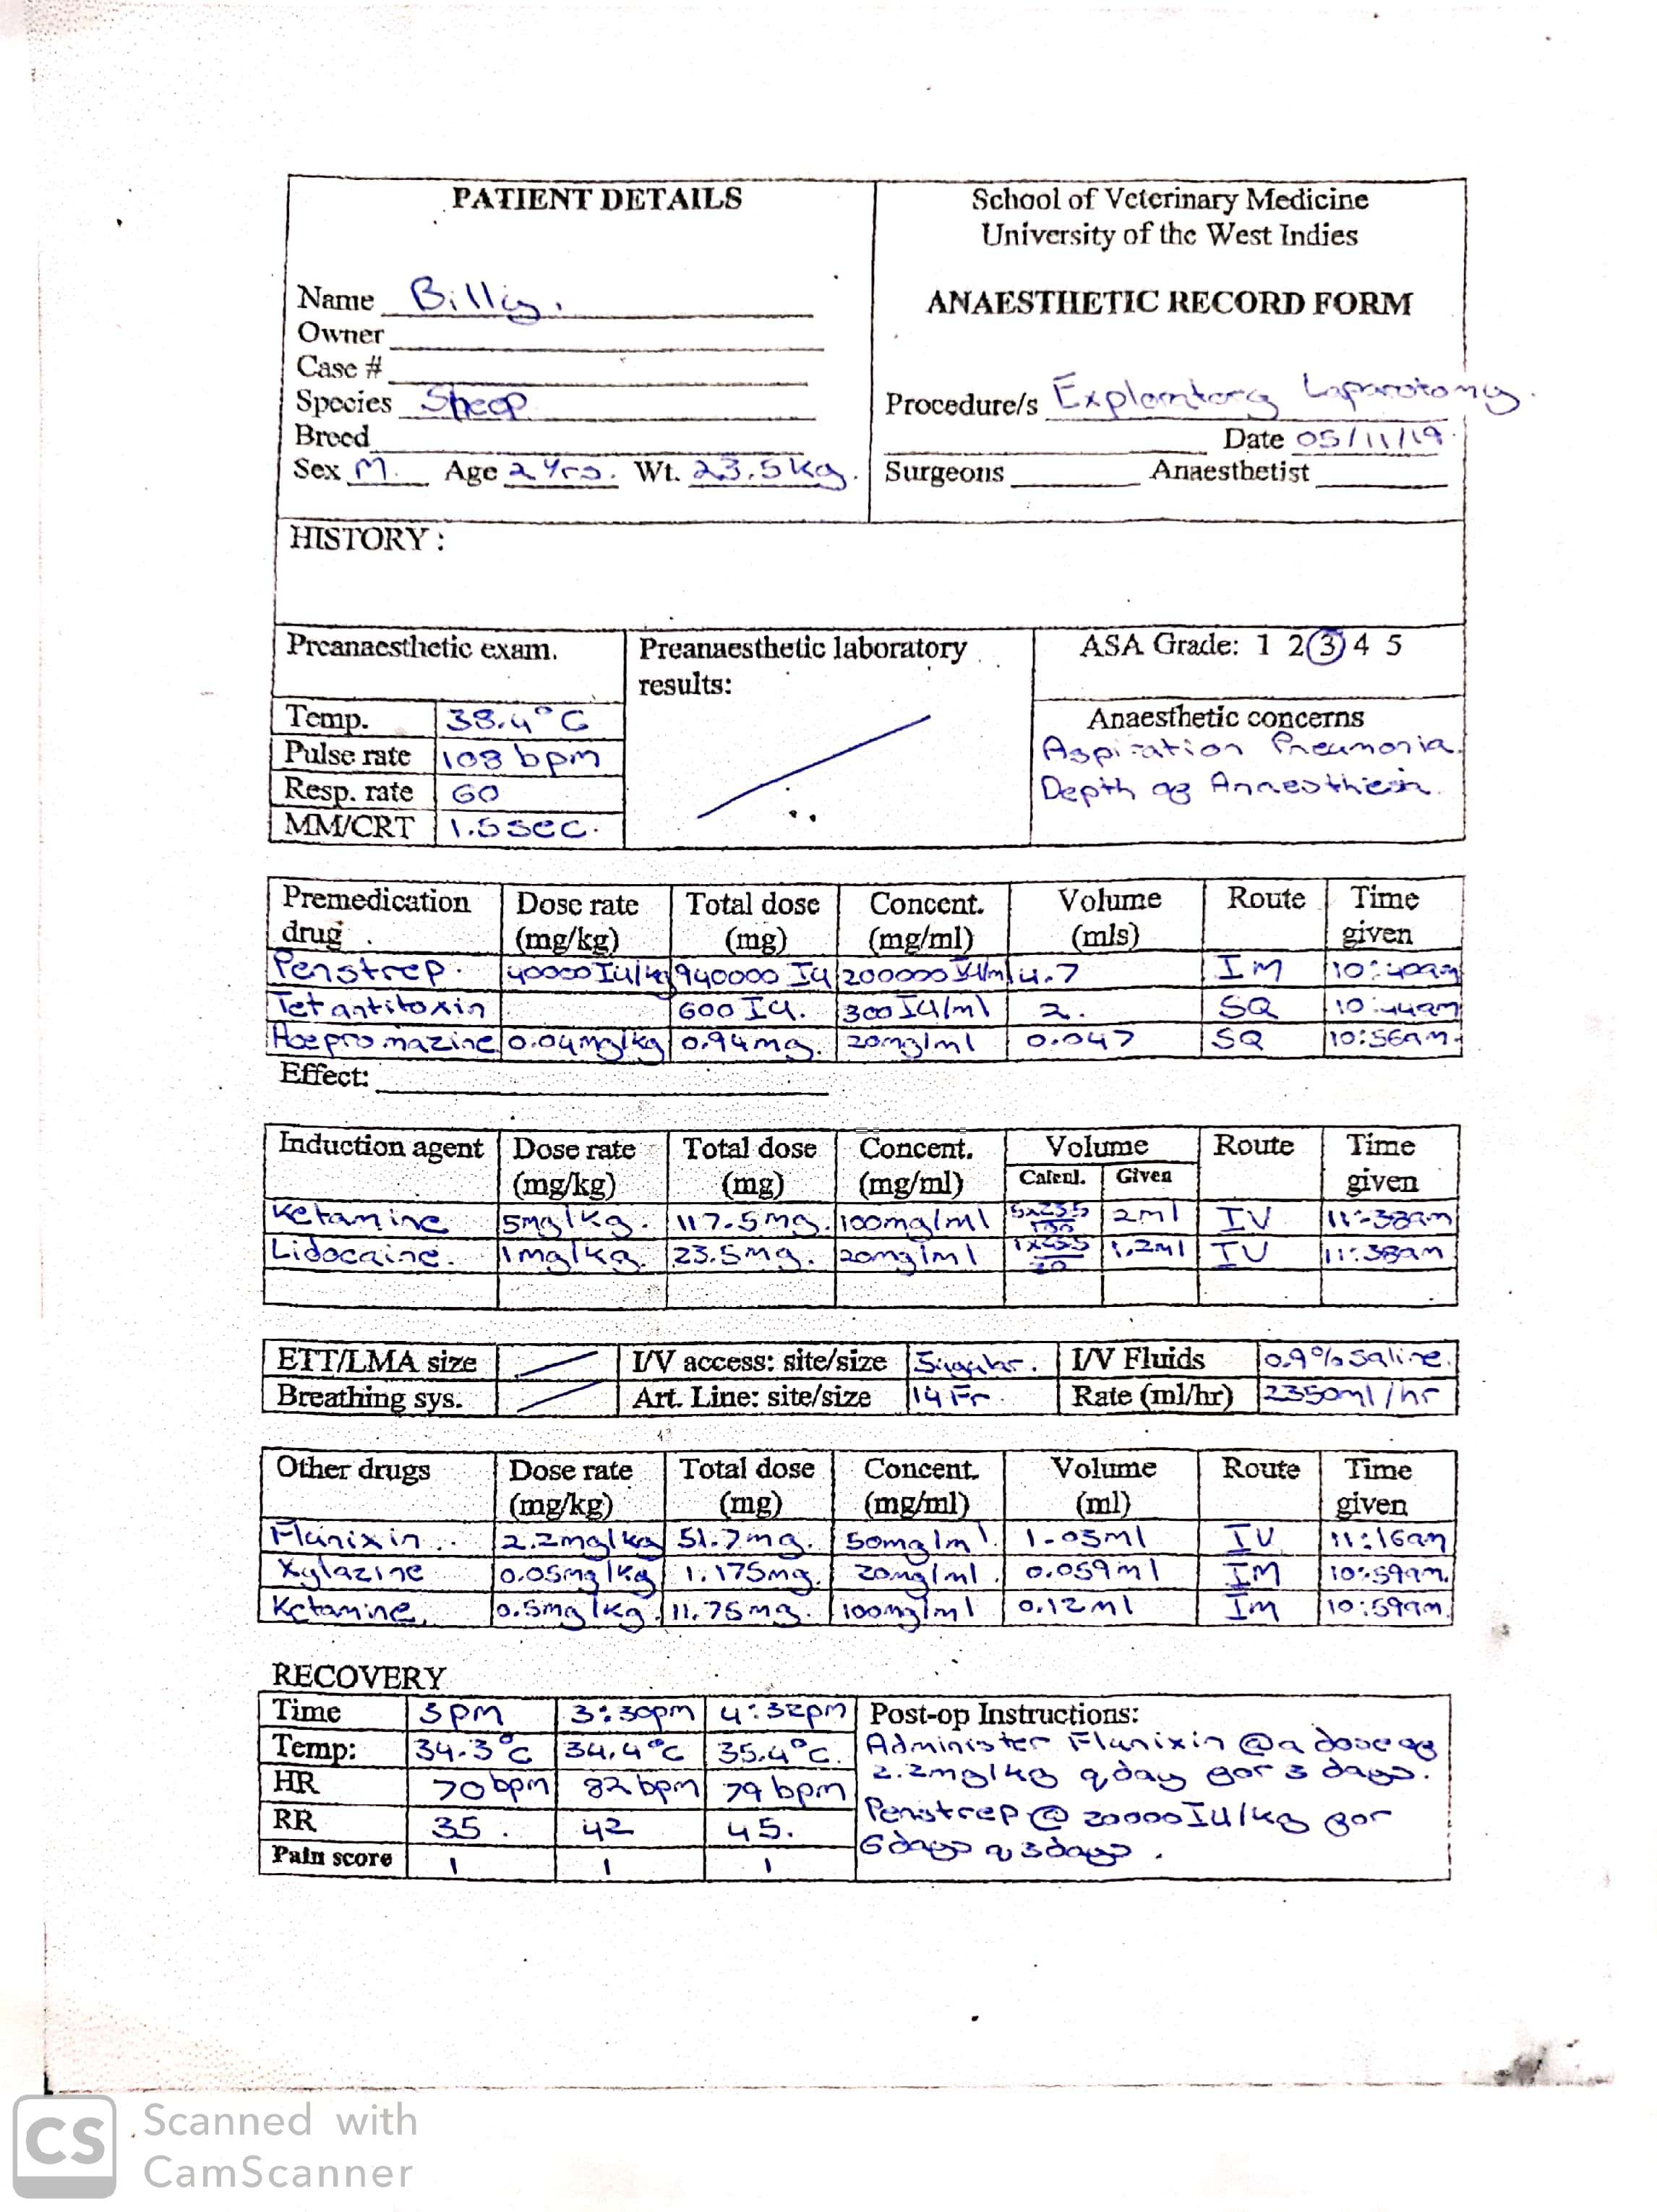 PATIENT DETAILS
School of Veterinary Medicine
University of the West Indies
ANAESTHETIC RECORD FORM
Name Billy.
Owner
Case #
Species Sheep
Breed
Sex M. Age 2 Yrs. Wt. 23.5kg.
Procedure/s Exploratory Laparotomy.
Date 05/11/19
Surgeons Anaesthetist
HISTORY :
Preanaesthetic exam.
Temp. 38.4°C
Pulse rate 108 bpm
Resp. rate 60
MM/CRT 1.5 sec.
Preanaesthetic laboratory
results:
ASA Grade: 1 2 3 4 5
Anaesthetic concerns
Aspiration Pneumonia.
Depth of
Premedication drug Dose rate (mg/kg) Total dose (mg) Concent. (mg/ml) Volume (mls) Route Time given
Penstrep. 40000 IU/kg 940000 IU 200000 IU/ml 4.7 IM 10:40am
Tetantitoxin 600 IU. 300 IU/ml 2. SQ 10:44am
Acepromazine 0.04mg/kg 0.94mg. 20mg/ml 0.047 SQ 10:56am.
Effect:
Induction agent Dose rate (mg/kg) Total dose (mg) Concent. (mg/ml) Volume Calcul. Given Route Time given
Ketamine 5mg/kg. 117.5mg. 100mg/ml 2ml IV 11:38am
Lidocaine. 1mg/kg. 23.5mg. 20mg/ml 1.2ml IV 11:38am
ETT/LMA size I/V access: site/size I/V Fluids 0.9% saline.
Breathing sys. Art. Line: site/size 14 Fr. Rate (ml/hr) 2350ml/hr
Other drugs Dose rate (mg/kg) Total dose (mg) Concent. (mg/ml) Volume (ml) Route Time given
Flunixin.. 2.2mg/kg 51.7mg. 50mg/ml. 1.03ml IV 11:16am
Xylazine 0.05mg/kg 1.175mg. 20mg/ml. 0.059ml IM 10:59am.
Ketamine. 0.5mg/kg. 11.75mg. 100mg/ml 0.12ml IM 10:59am.
RECOVERY
Time 3pm 3:30pm 4:32pm
Temp: 34.3°C 34.4°C 35.4°C.
HR 70bpm 82bpm 79bpm
RR 35. 42 45.
Pain score 1 1 1
Post-op Instructions:
Administer Flunixin @ a dose of
2.2mg/kg q day for 3 days.
Penstrep @ 20000IU/kg for
6days q 3days.
CS Scanned with
CamScanner